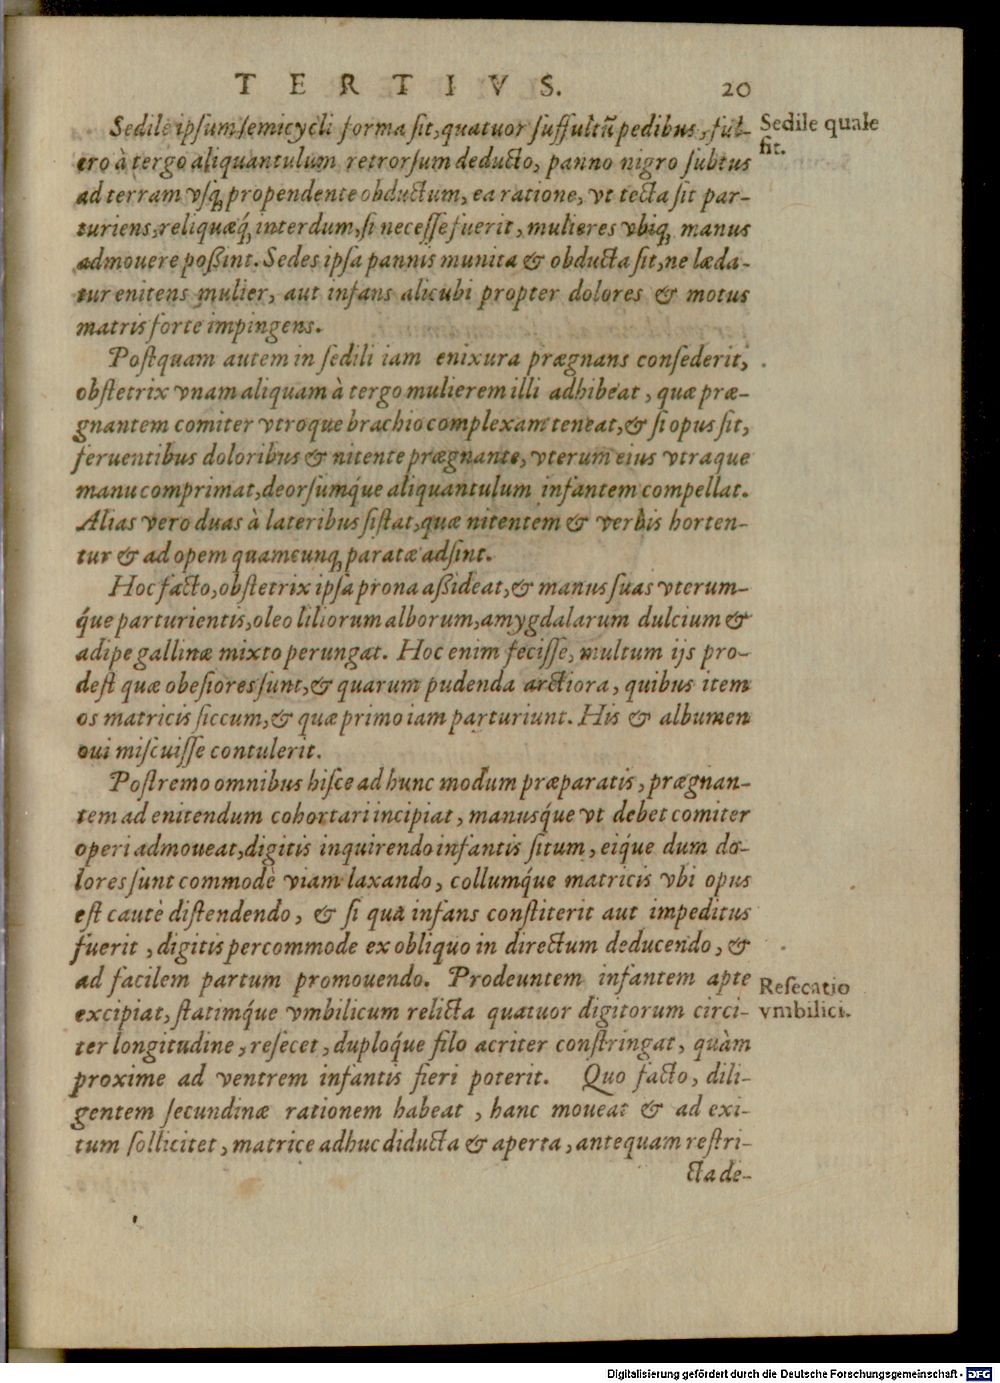 TERTIVS. 20
Sedile ipsum semicycli forma sit, quatuor suffultũ pedibus, ful-
cro à tergo aliquantulum retrorsum deducto, panno nigro subtus
ad terram vsq; propendente obductum, ea ratione, vt tecta sit par-
turiens, reliquæq́; interdum, si necesse fuerit, mulieres vbiq; manus
admouere poßint. Sedes ipsa pannis munita & obducta sit, ne læda-
tur enitens mulier, aut infans alicubi propter dolores & motus
matris forte impingens.
Sedile quale
sit.
Postquam autem in sedili iam enixura prægnans consederit,
obstetrix vnam aliquam à tergo mulierem illi adhibeat, quæ præ-
gnantem comiter vtroque brachio complexam teneat, & si opus sit,
feruentibus doloribus & nitente prægnante, vterum eius vtraque
manu comprimat, deorsumq́ue aliquantulum infantem compellat.
Alias vero duas à lateribus sistat, quæ nitentem & verbis horten-
tur & ad opem quamcunq; paratæ adsint.
Hoc facto, obstetrix ipsa prona aßideat, & manus suas vterum-
q́ue parturientis, oleo liliorum alborum, amygdalarum dulcium &
adipe gallinæ mixto perungat. Hoc enim fecisse, multum ijs pro-
dest quæ obesiores sunt, & quarum pudenda arctiora, quibus item
os matricis siccum, & quæ primo iam parturiunt. His & albumen
oui miscuisse contulerit.
Postremo omnibus hisce ad hunc modum præparatis, prægnan-
tem ad enitendum cohortari incipiat, manusq́ue vt debet comiter
operi admoueat, digitis inquirendo infantis situm, eiq́ue dum do-
lores sunt commodè viam laxando, collumq́ue matricis vbi opus
est cautè distendendo, & si qua infans constiterit aut impeditus
fuerit, digitis percommode ex obliquo in directum deducendo, &
ad facilem partum promouendo. Prodeuntem infantem apte
excipiat, statimq́ue vmbilicum relicta quatuor digitorum circi-
ter longitudine, resecet, duploq́ue filo acriter constringat, quàm
proxime ad ventrem infantis fieri poterit. Quo facto, dili-
gentem secundinæ rationem habeat, hanc moueat & ad exi-
tum sollicitet, matrice adhuc diducta & aperta, antequam restri-
cta de-
Resecatio
vmbilici.
Digitalisierung gefördert durch die Deutsche Forschungsgemeinschaft - DFG